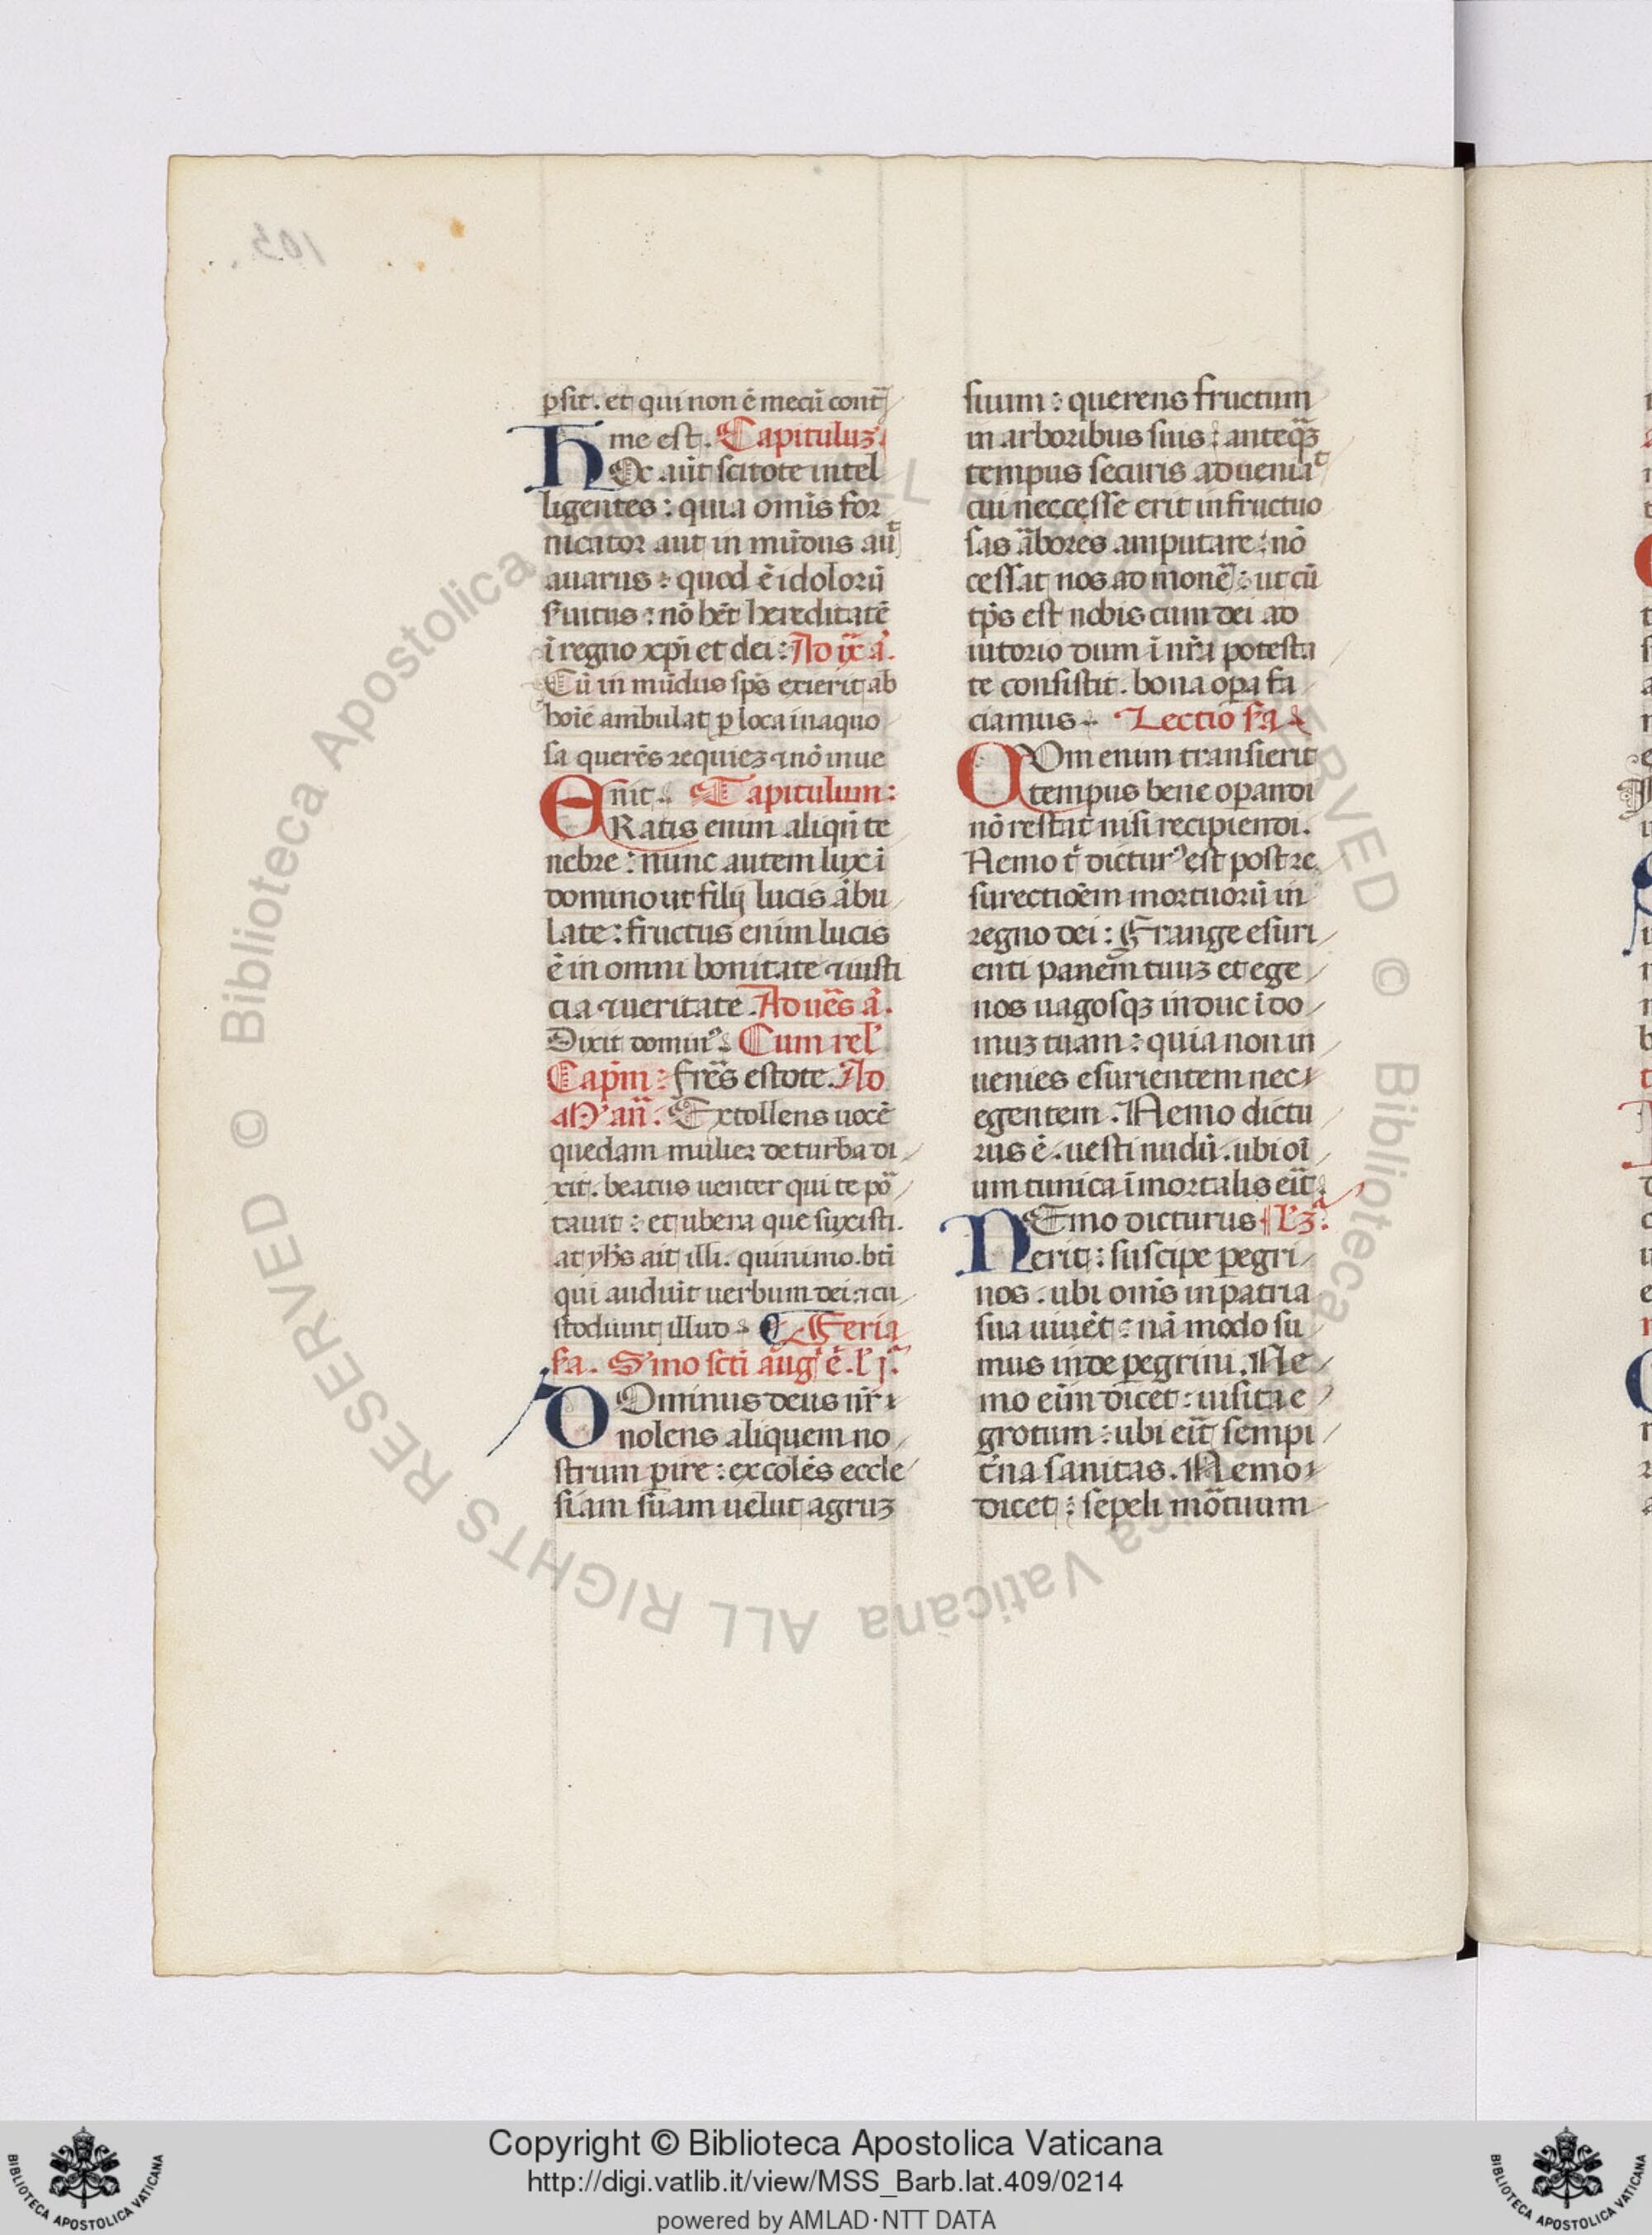 psit. et qui non ē mecū cont̄
me est. Capituluz
HOc aūt scitote intel
ligentes : quia omīs for
nicator aut in mūdus aūt
auarus : quod ē idolorū
s̄uitus : nō hēt hereditatē
ī regno xp̄i et dei : Ad ix ā.
Cū in mūdus sp̄s exierit ab
hoīe ambulat p loca inaquo
sa querēs requiez ⁊ nō inue
nīt. Capitulum :
ERatis enim aliqn̄ te
nebre : nunc autem lux ī
domino ut filij lucis ābu
late : fructus enim lucis
ē in omni bonitate ⁊ iusti
cia ⁊ ueritate. Ad uēs ā.
Dixit domin⁹. Cum rel'
Capīm : fr̄es estote. Ad
M' an̄. Extollens uocē
quedam mulier de turba di
xit. beatus uenter qui te por
tauit : et ubera que suxisti.
at yhs ait illi. quinimo. bt̄i
qui audiūt uerbum dei : ⁊ cu
stodiunt illud. Feria
s̄a. S'mo sc̄ti aug' ē. l' j.ª
DOminus deus nr̄
nolens aliquem no
strum pire : excolēs eccle
siam suam uelut agruz
suum : querens fructum
in arboribus suis : anteq̄z
tempus securis adueniat
cui neccesse erit infructuo
sas ābores amputare : nō
cessat nos ad monē : ut cū
tp̄s est nobis cum dei ad
iutorio dum ī nr̄a potesta
te consistit. bona opa fa
ciamus. Lectio s̄a
QVom enim transierit
tempus bene operandi
nō restat nisi recipiendi.
Nemo t̄ dictur⁹ est post re
surectiōem mortuorū in
regno dei : Frange esuri
enti panem tuuz et ege
nos uagosqz induc ī do
muz tuam : quia non in
uenies esurientem nec
egentem. Nemo dictu
rus ē. uesti nudū. ubi oī
um tunica īmortalis eīt.
NEmo dicturus l' 3ª.
erit : suscipe pegri
nos. ubi omīs in patria
sua uiuēt : nā modo su
mus inde pegrini. Ne
mo eīm dicet : uisita e
grotum : ubi eīt sempi
t̄na sanitas. Nemo
dicet : sepeli mōtuum
103
© Biblioteca Apostolica Vaticana ALL RIGHTS RESERVED © Biblioteca Apostolica Vaticana ALL RIGHTS RESERVED
Copyright © Biblioteca Apostolica Vaticana
http://digi.vatlib.it/view/MSS_Barb.lat.409/0214
powered by AMLAD·NTT DATA
BIBLIOTECA APOSTOLICA VATICANA
BIBLIOTECA APOSTOLICA VATICANA